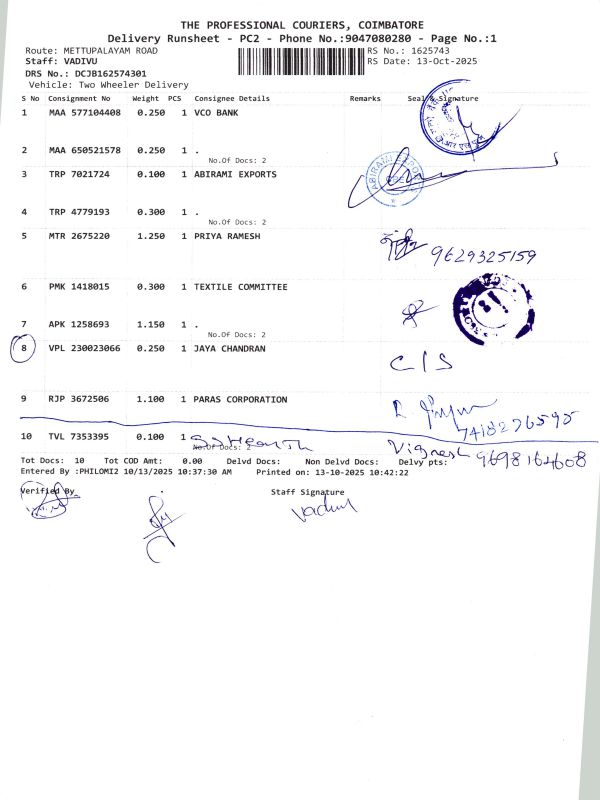 THE PROFESSIONAL COURIERS, COIMBATORE
Delivery Runsheet - PC2 - Phone No.:9047080280 - Page No.:1
Route: METTUPALAYAM ROAD RS No.: 1625743
Staff: VADIVU RS Date: 13-Oct-2025
DRS No.: DCJB162574301
Vehicle: Two Wheeler Delivery
S No Consignment No Weight PCS Consignee Details Remarks Seal & Signature
1 MAA 577104408 0.250 1 VCO BANK
2 MAA 650521578 0.250 1 .
No.Of Docs: 2
3 TRP 7021724 0.100 1 ABIRAMI EXPORTS
4 TRP 4779193 0.300 1 .
No.Of Docs: 2
5 MTR 2675220 1.250 1 PRIYA RAMESH
9629325159
6 PMK 1418015 0.300 1 TEXTILE COMMITTEE
7 APK 1258693 1.150 1 .
No.Of Docs: 2
8 VPL 230023066 0.250 1 JAYA CHANDRAN
C/S
9 RJP 3672506 1.100 1 PARAS CORPORATION
7418276595
10 TVL 7353395 0.100 1 Vignesh
No.Of Docs: 2 9698164608
Tot Docs: 10 Tot COD Amt: 0.00 Delvd Docs: Non Delvd Docs: Delvy pts:
Entered By :PHILOMI2 10/13/2025 10:37:30 AM Printed on: 13-10-2025 10:42:22
Verified By Staff Signature